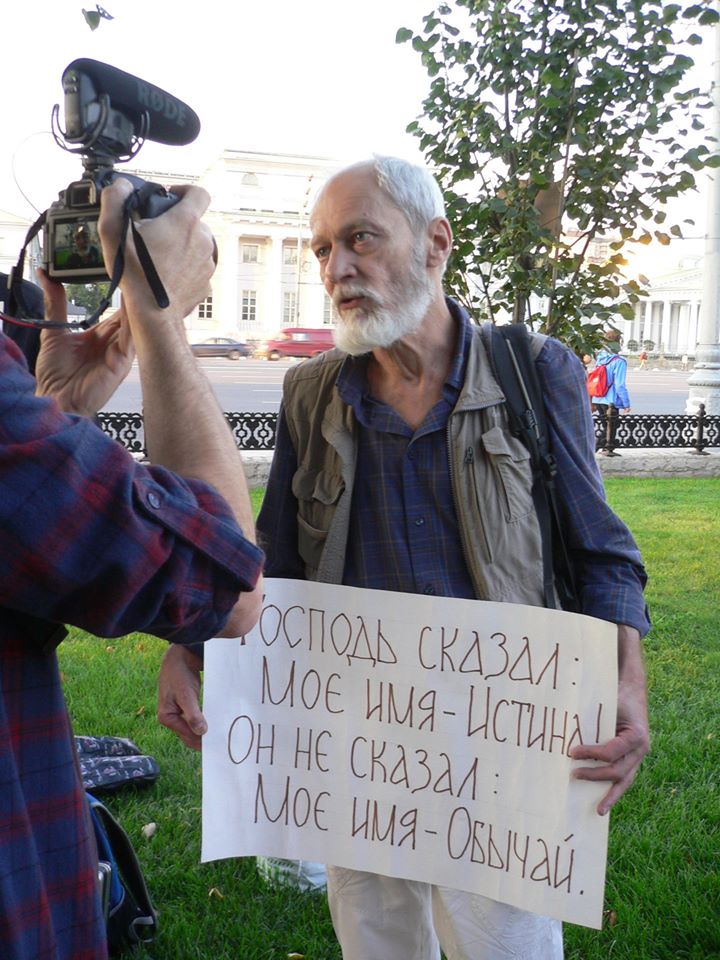 RØDE
Господь сказал:
Моє имя - Истина!
Он не сказал:
Моє имя - Обычай.